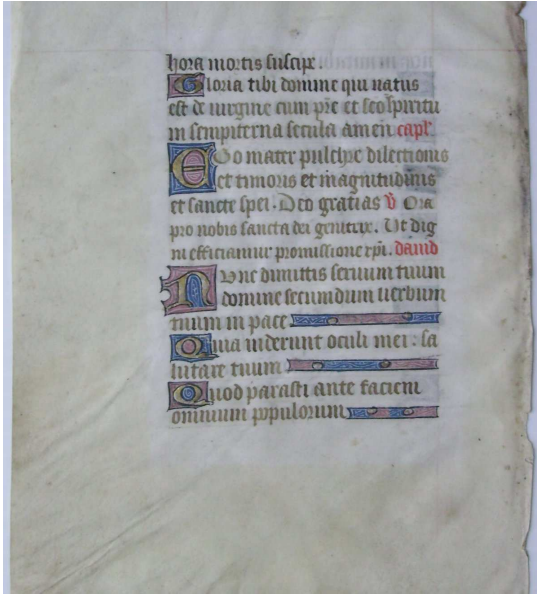 hora mortis suscipe.
Gloria tibi domine qui natus
est de uirgine cum pre et sco spiritu
in sempiterna secula amen capl.
Ego mater pulchre dilectionis
et timoris et magnitudinis
et sancte spei. Deo gratias V Ora
pro nobis sancta dei genitrix. Ut dig
ni efficiamur promissione xpi. dauid
Nunc dimittis seruum tuum
domine secundum uerbum
tuum in pace
Quia uiderunt oculi mei: sa
lutare tuum
Quod parasti ante faciem
omnium populorum